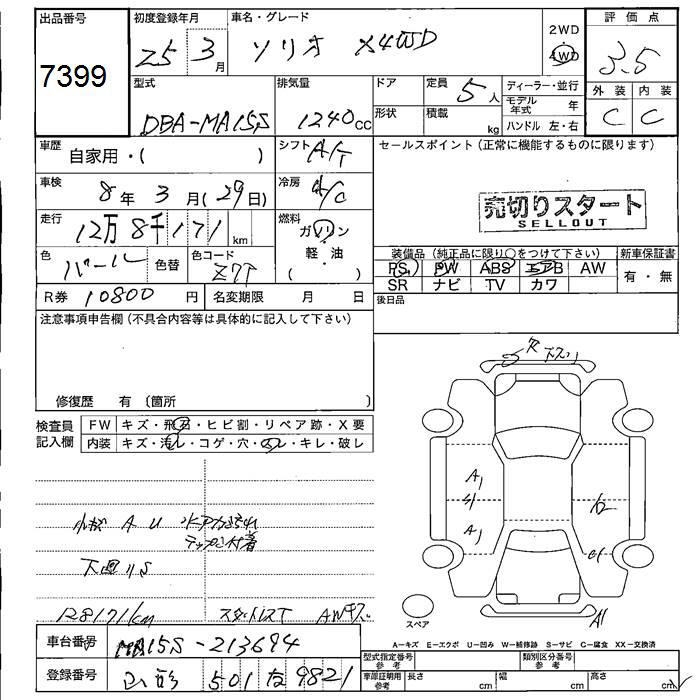 出品番号
7399
初度登録年月
25 3月
車名・グレード
ソリオ X4WD
2WD
4WD
評価点
3.5
外装 内装
C C
型式
DBA-MA15S
排気量
1240cc
ドア
形状
定員 5人
積載 kg
ディーラー・並行
モデル年式 年
ハンドル 左・右
車歴
自家用・( )
シフト A/T
車検
8年3月(29日)
冷房 A/C
走行
12万8千171km
燃料
ガソリン
軽油
( )
色
パール
色替
色コード
Z7T
R券 10800円
名変期限 月 日
セールスポイント(正常に機能するものに限ります)
売切りスタート
SELLOUT
装備品(純正品に限り○をつけて下さい)
新車保証書
PS PW ABS エアB AW
有・無
SR ナビ TV カワ
後日品
注意事項申告欄(不具合内容等は具体的に記入して下さい)
修復歴 有(箇所 )
検査員記入欄
FW キズ・飛石・ヒビ割・リペア跡・X要
内装 キズ・汚レ・コゲ・穴・スレ・キレ・破レ
小キズ A U
下廻りS
128171km
スタッドレスT AWキズ
A1
A1
A1
スペア
A―キズ E―エクボ U―凹み W―補修跡 S―サビ C―腐食 XX―交換済
車台番号
MA15S-213694
登録番号
山形 501 な 9821
型式指定番号
参考
類別区分番号
参考
車庫証明用
参考
長さ cm
幅 cm
高さ cm